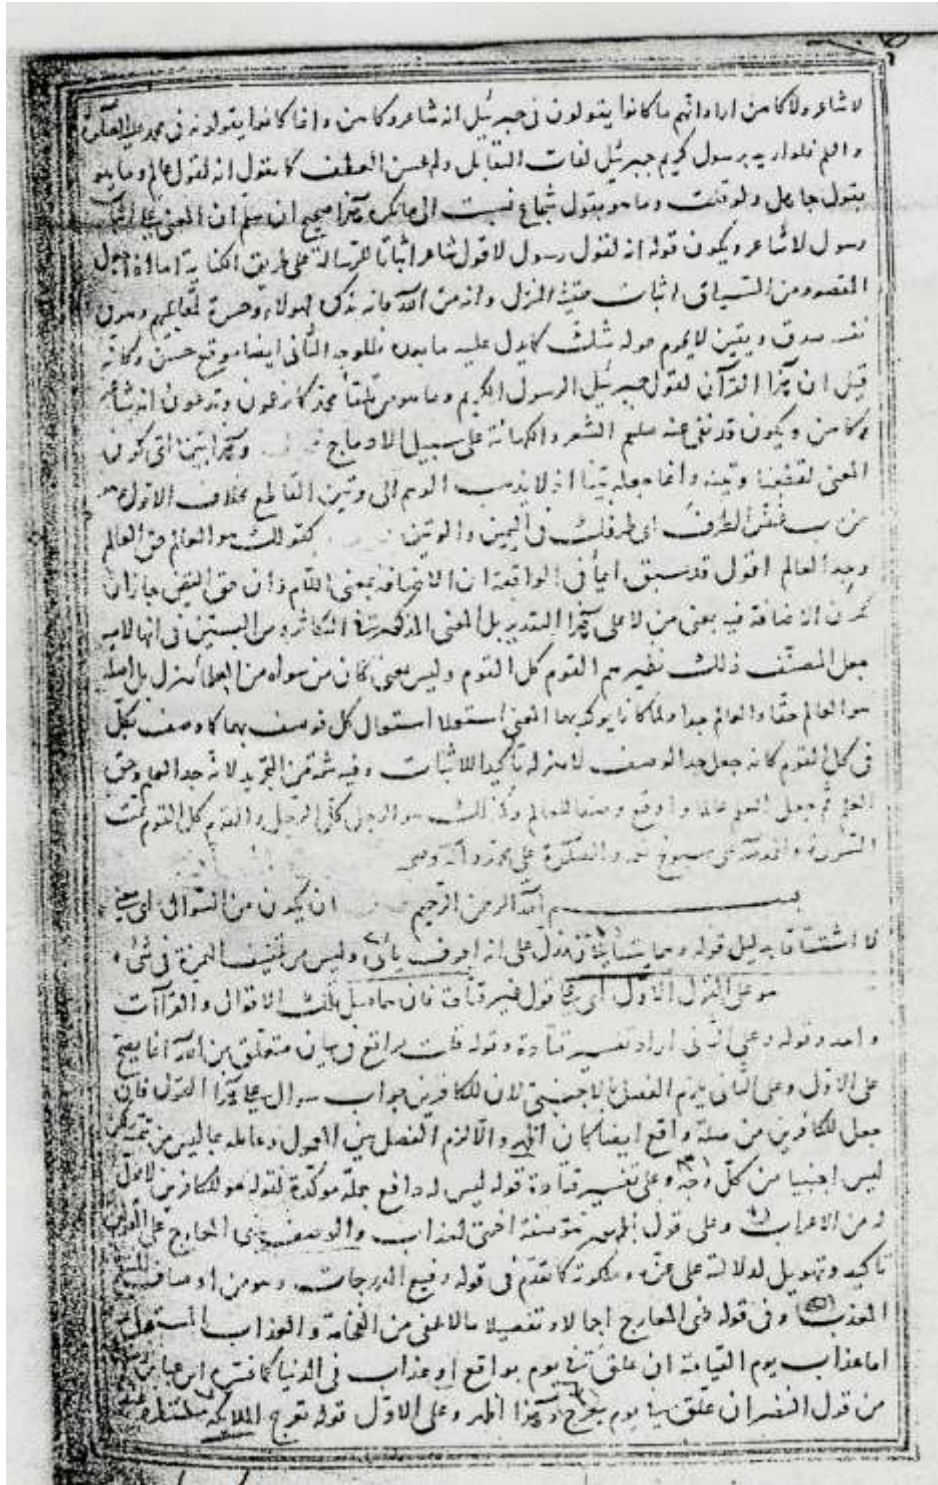 لا شاعر ولا كاهن اراد انهم ما كانوا يقولون فى جبرئيل انه شاعر وكاهن وانما كانوا يقولونه فى محمد عليه الصلوة
والسلم فلو اريد برسول كريم جبرئيل لفات التقابل ولم يحسن العطف كما تقول انه لقول عالم وما هو
بقول جاهل ولو قلت وما هو بقول شجاع نسبت الى ما تكره وهذا صحيح ان سلم ان المعنى على اثبات
رسول لا شاعر ويكون قوله انه لقول رسول لا قول شاعر اثباتا للرسالة على طريق الكناية اما اذا جعل
المقصود من السياق اثبات حقية المنزل وانه من الله فانه تذكرة لهؤلاء وحسرة لمقابليهم وهو فى
نفسه صدق ويقين لا يحوم حوله شك كما يدل عليه ما بعده فللوجه الثانى ايضا موقع حسن وكانه
قيل ان هذا القرآن لقول جبرئيل الرسول الكريم وما هو من تلقاء محمد كما تزعمون وتدعون انه شاعر
وكاهن ويكون قد نفى عنه صلعم الشعر والكهانة على سبيل الادماج
المعنى لقطعنا وتينه وانما جعله بينا انه لا يذهب الوهم الى وتين القاطع بخلاف الاول
من ب غض الطرف اى طرفك فى اليمين والوتين كقولك هو العالم حق العالم
وجد العالم اقول قد سبق ايماء فى الواقعة ان الاضافة بمعنى اللام وان حق اليقين جاز ان
تكون الاضافة فيه بمعنى من لا على هذا التقدير بل المعنى المذكور فى التكاثر
جعل المصنف ذلك نظير هم القوم كل القوم وليس معنى كان من سواه من العلماء نزل بل اصله
هو العالم حقا والعالم جدا ولما كانا يؤكد بهما المعنى استعملا استعمال كل فوصف بهما كما وصف بكل
فى كل القوم كانه جعل جد الوصف منزلة تأكيد الاثبات وفيه شمة من التجريد لانه جد العلم وحق
العلم ثم جعل العلم عالما واوقع وصفا للعالم وكذلك هو الرجل كل الرجل والقوم كل القوم تمت
السورة والحمد لله والصلوة على محمد وآله
بسم الله الرحمن الرحيم ان يكون من السؤال
لا اشتقاقا بدليل قوله وهما يتسايلان فدل على انه اجوف يائى وليس من تخفيف الهمزة فى شىء
هو على القول الاول اى على قول غير قتادة فان حاصل تلك الاقوال والقراآت
واحد وقوله وعلى الثانى اراد تفسير قتادة وقوله قلت يراقع فى بيان متعلق من الله انما يصح
على الاول وعلى الثانى يلزم الفصل بالاجنبى لان للكافرين جواب سؤال على هذا القول فان
جعل للكافرين من صلة واقع ايضا كان اظهر والا لزم الفصل بين المعمول وعامله بما ليس من تتمته
ليس اجنبيا من كل وجه وعلى تفسير قتادة قوله ليس له دافع جملة مؤكدة لقوله هو للكافرين لا محل
له من الاعراب وعلى قول الجمهور هو صفة اخرى لعذاب والوصف بذى المعارج على القولين
تأكيد وتهويل لدلالته على عزه وملكوته كما تقدم فى قوله رفيع الدرجات وهو من اوصاف
المعذب وفى قوله ذى المعارج اجمالا وتفصيلا ما لا يخفى من الفخامة والعذاب المستعجل
اما عذاب يوم القيامة ان علق فى يوم بواقع او عذاب فى الدنيا كما فسره ابن عباس
من قول النضر ان علق فى يوم بتعرج وهذا اظهر وعلى الاول قوله تعرج الملائكة